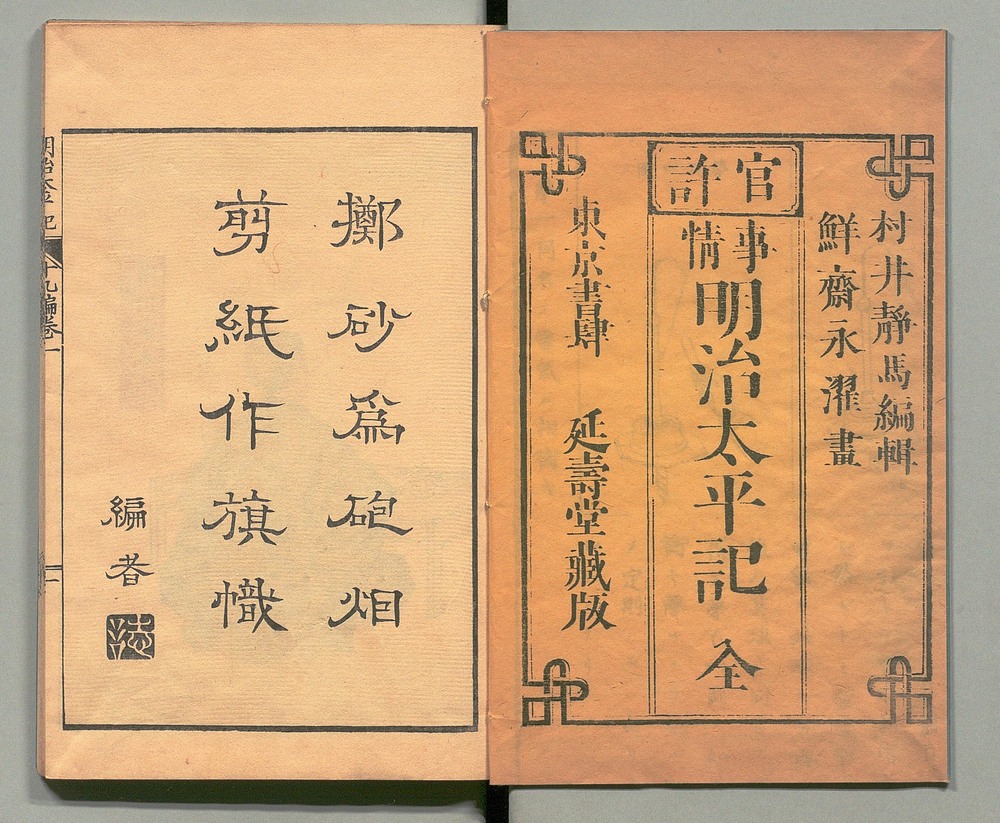 村井靜馬編輯
鮮齋永濯畫
官許
事情
明治太平記 全
東京書肆 延壽堂藏版
擲砂爲砲烟
剪紙作旗幟
編者
誌
明治太平記 十九編卷一